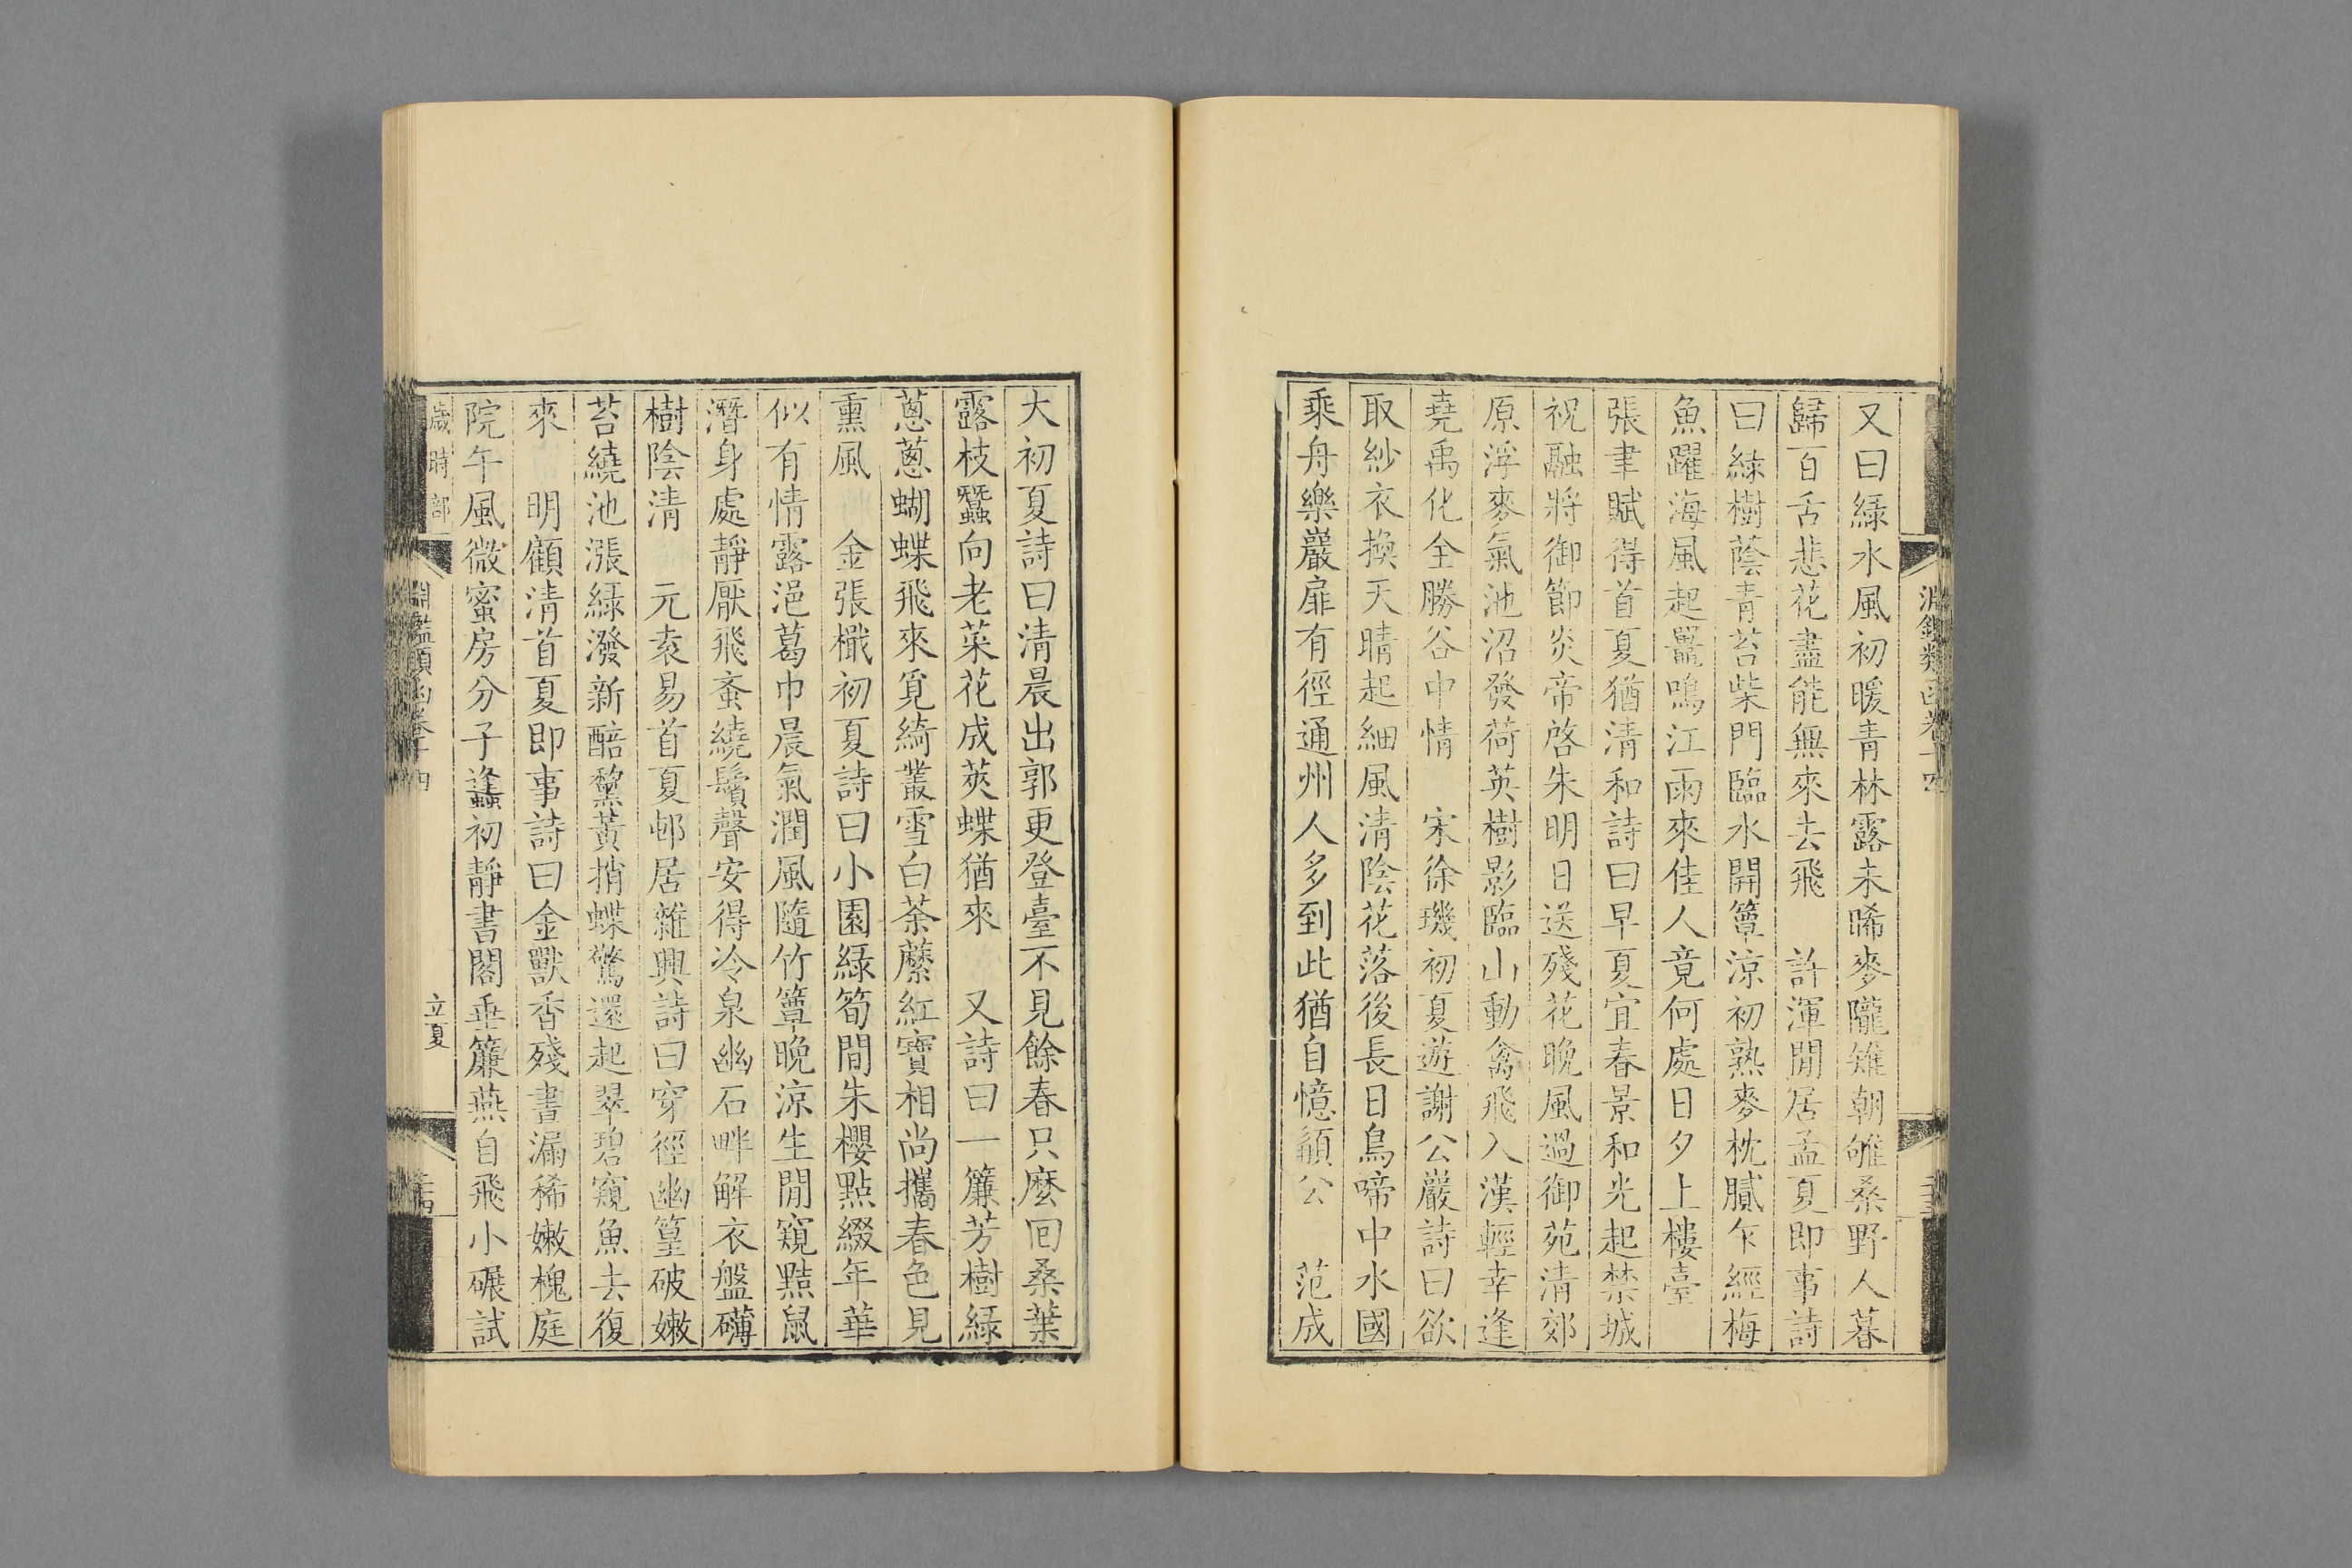 又曰綠水風初暖青林露未晞麥隴雉朝雊桑野人暮
歸百舌悲花盡能無來去飛　許渾閒居孟夏即事詩
曰綠樹蔭青苔柴門臨水開簟涼初熟麥枕膩乍經梅
魚躍海風起鼉鳴江雨來佳人竟何處日夕上樓臺
張聿賦得首夏猶清和詩曰早夏宜春景和光起禁城
祝融將御節炎帝啓朱明日送殘花晚風過御苑清郊
原浮麥氣池沼發荷英樹影臨山動禽飛入漢輕幸逢
堯禹化全勝谷中情　宋徐璣初夏遊謝公巖詩曰欲
取紗衣換天晴起細風清陰花落後長日鳥啼中水國
乘舟樂巖扉有徑通州人多到此猶自憶顏公　范成
大初夏詩曰清晨出郭更登臺不見餘春只麼回桑葉
露枝蠶向老菜花成莢蝶猶來　又詩曰一簾芳樹綠
蔥蔥蝴蝶飛來覓綺叢雪白荼蘼紅寶相尚攜春色見
熏風　金張檝初夏詩曰小園綠筍間朱櫻點綴年華
似有情露浥葛巾晨氣潤風隨竹簟晚涼生閒窺黠鼠
潛身處靜厭飛蚉繞鬢聲安得冷泉幽石畔解衣盤礴
樹陰清　元袁易首夏邨居雜興詩曰穿徑幽篁破嫩
苔繞池漲綠潑新醅黧黃捎蝶驚還起翠碧窺魚去復
來　明顧清首夏即事詩曰金獸香殘晝漏稀嫩槐庭
院午風微蜜房分子蠭初靜書閣垂簾燕自飛小碾試
歲時部
淵鑑類函卷十四
立夏